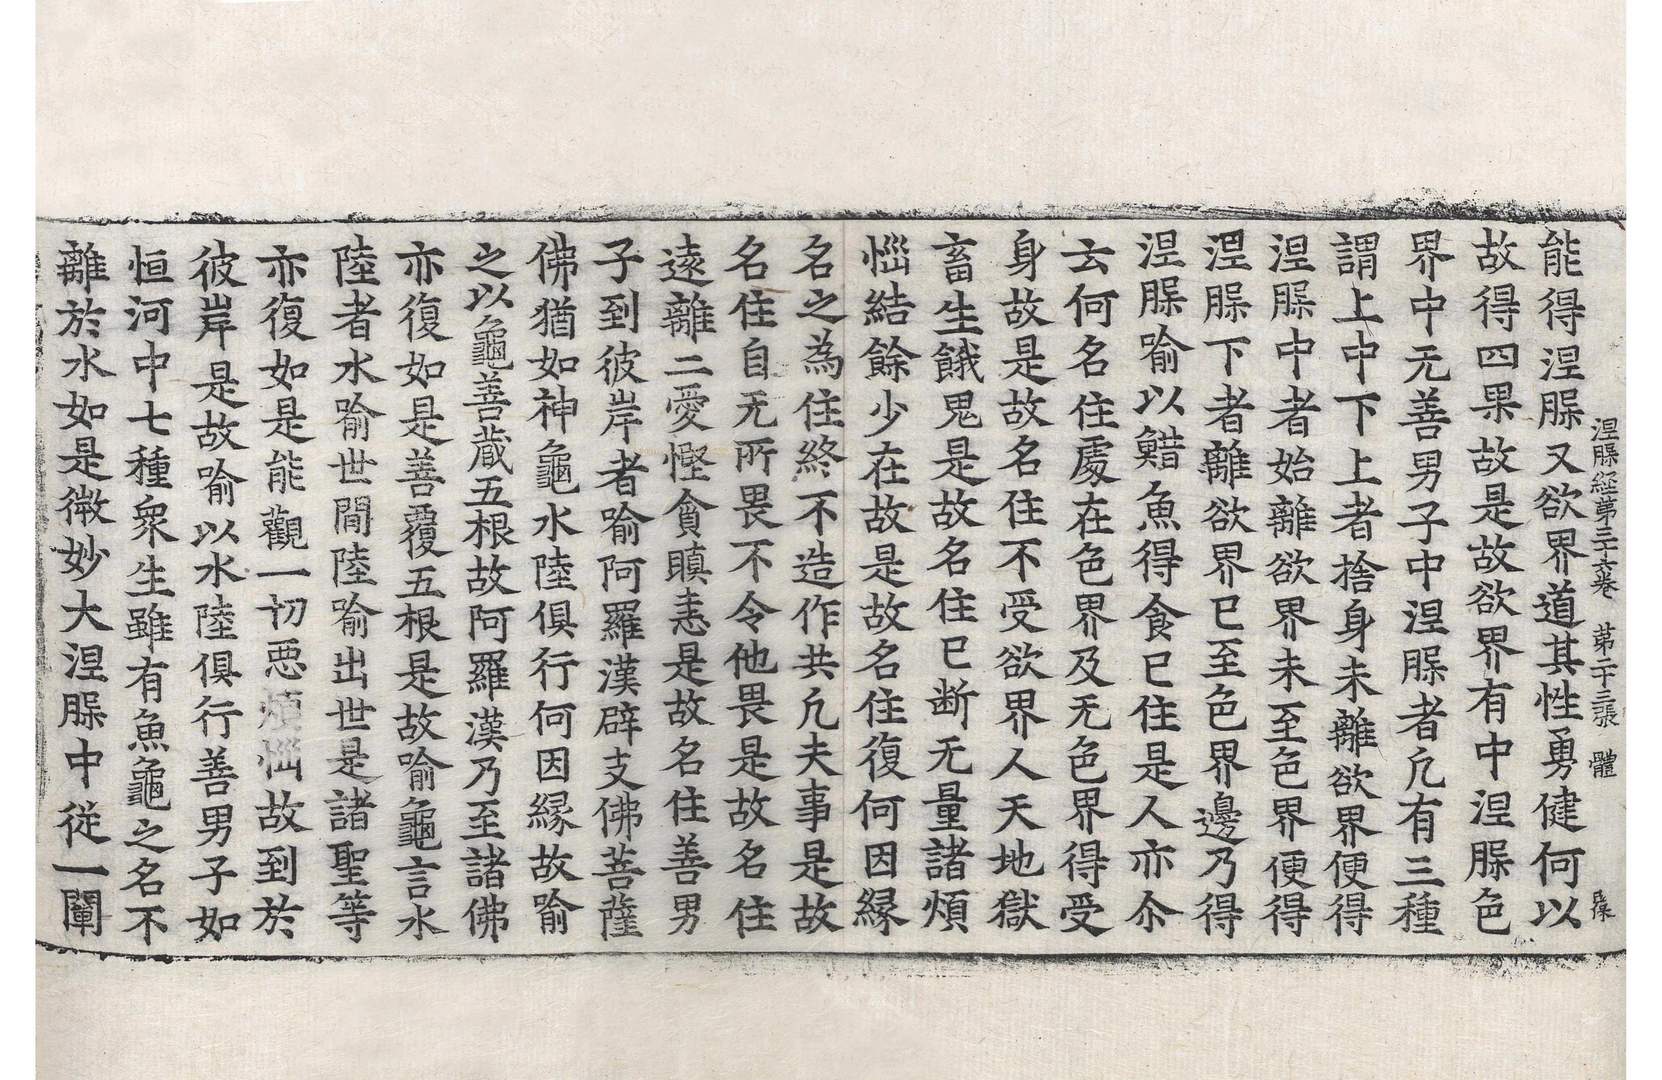 涅槃経第三十六卷　第二十三張　體
能得涅槃又欲界道其性勇健何以
故得四果故是故欲界有中涅槃色
界中无善男子中涅槃者凢有三種
謂上中下上者捨身未離欲界便得
涅槃中者始離欲界未至色界便得
涅槃下者離欲界已至色界邊乃得
涅槃喻以䱜魚得食已住是人亦尒
云何名住處在色界及无色界得受
身故是故名住不受欲界人天地獄
畜生餓鬼是故名住已断无量諸煩
惱結餘少在故是故名住復何因縁
名之為住終不造作共凢夫事是故
名住自无所畏不令他畏是故名住
遠離二愛慳貪瞋恚是故名住善男
子到彼岸者喻阿羅漢辟支佛菩薩
佛猶如神龜水陸俱行何因縁故喻
之以龜善蔵五根故阿羅漢乃至諸佛
亦復如是善覆五根是故喻龜言水
陸者水喻世間陸喻出世是諸聖等
亦復如是能觀一切悪煩惱故到於
彼岸是故喻以水陸俱行善男子如
恒河中七種衆生雖有魚龜之名不
離於水如是微妙大涅槃中從一闡